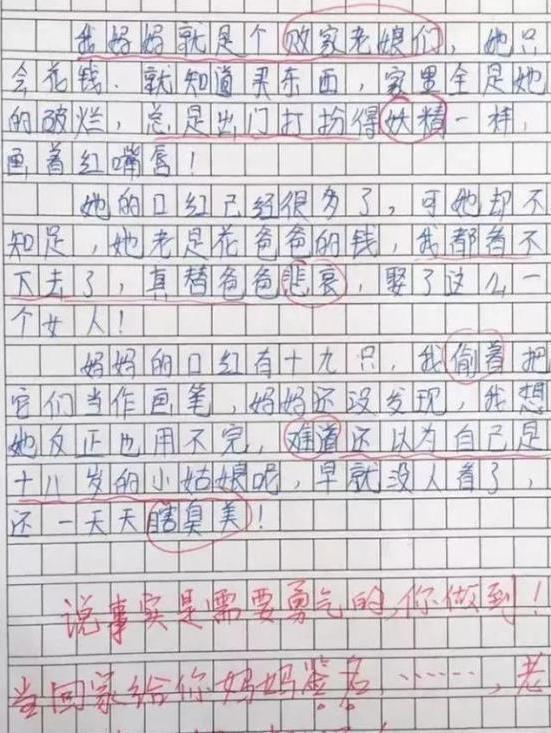 我妈妈就是个败家老娘们，她只
会花钱．就知道买东西，家里全是她
的破烂，总是出门打扮得妖精一样，
画着红嘴唇！
她的口红已经很多了，可她却不
知足，她老是花爸爸的钱，我都看不
下去了，真替爸爸悲哀，娶了这么一
个女人！
妈妈的口红有十九只，我偷着把
它们当作画笔，妈妈还没发现，我想
她反正也用不完，难道还以为自己是
十八岁的小姑娘呢，早就没人看了，
还一天天瞎臭美！
说事实是需要勇气的，你做到！
回家给你妈妈签名······，老